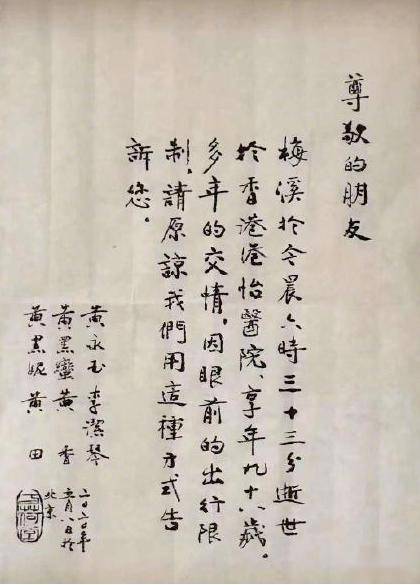 尊敬的朋友
梅溪於今晨六時三十三分逝世
於香港港怡醫院、享年九十八歲。
多年的交情，因眼前的出行限
制、請原諒我們用這種方式告
訴您。
黃永玉 李潔琴
黃黑蠻 黃香
黃黑妮 黃田
二〇二〇年
五月八日於
北京